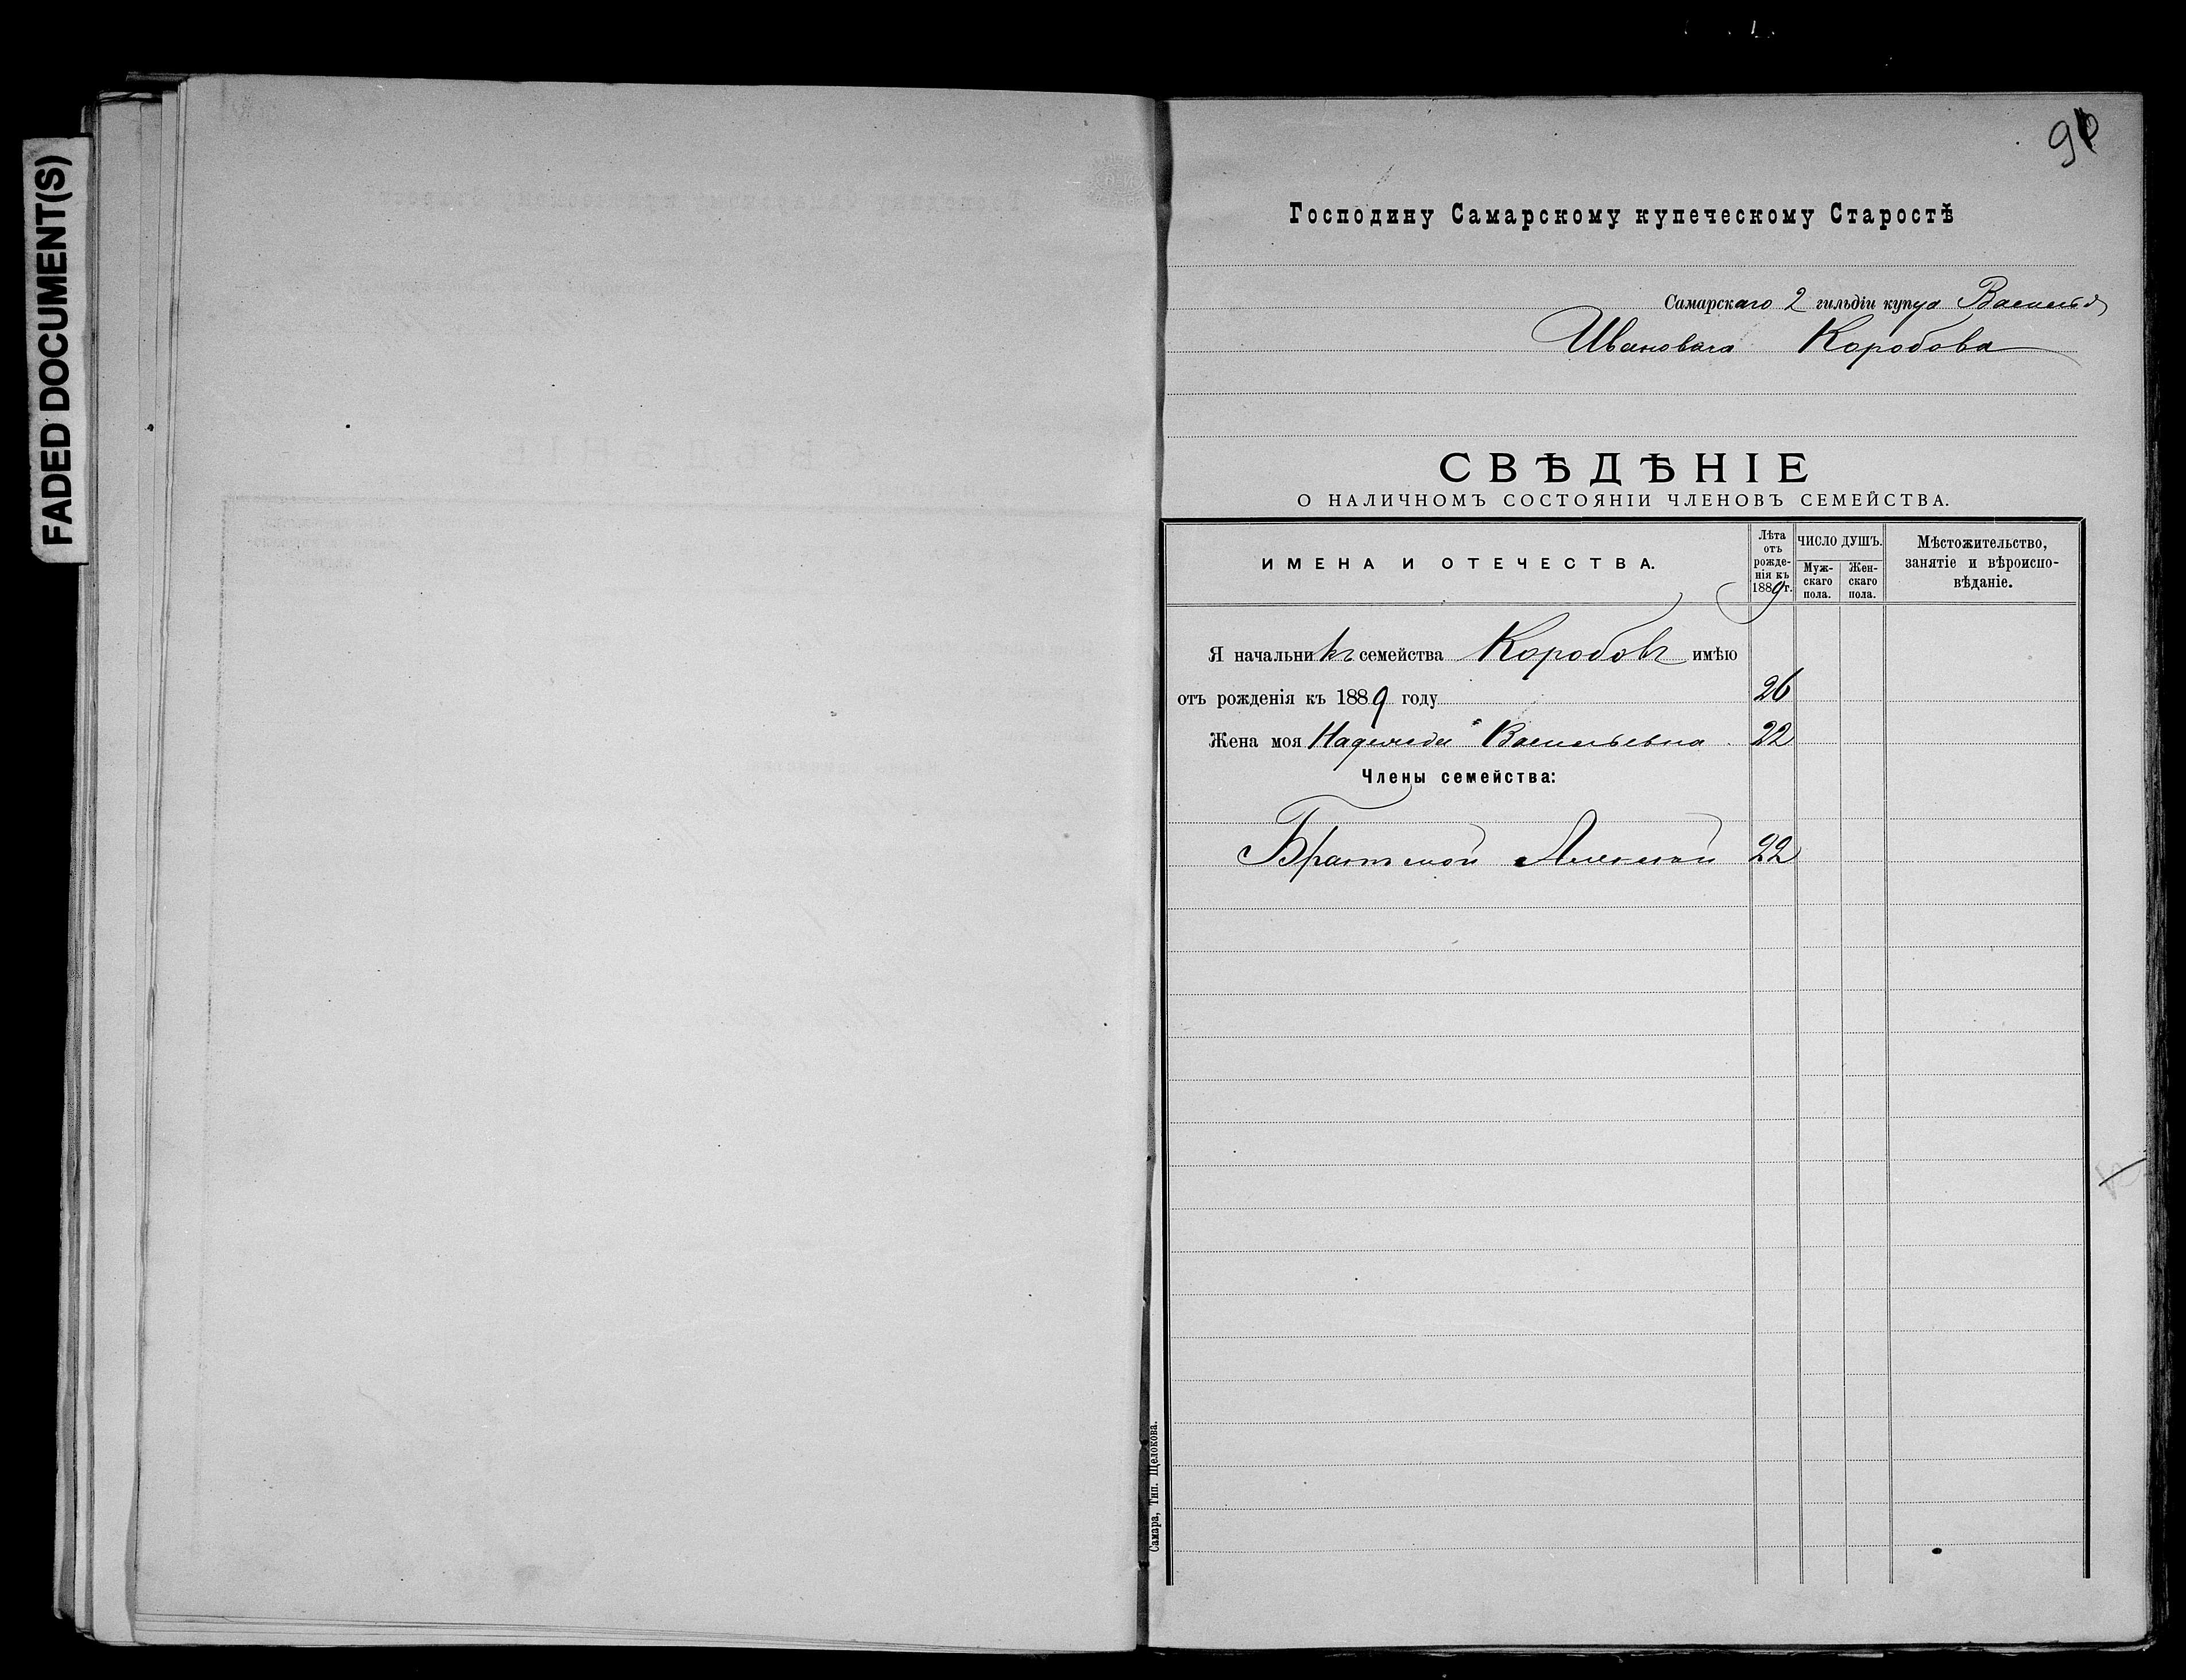 FADED DOCUMENT(S)
Господину Самарскому купеческому Старостѣ
Самарскаго 2 гильдіи купца Василія
Ивановаго Коробова
СВѢДѢНІЕ
О НАЛИЧНОМЪ СОСТОЯНІИ ЧЛЕНОВЪ СЕМЕЙСТВА.
ИМЕНА И ОТЕЧЕСТВА.
Лѣта отъ рожде-нія къ 1889 г.
ЧИСЛО ДУШЪ.
Муж-скаго пола.
Жен-скаго пола.
Мѣстожительство, занятіе и вѣроиспо-вѣданіе.
Я начальникъ семейства Коробовъ имѣю
отъ рожденія къ 1889 году 26
Жена моя Надежда Васильевна 22
Члены семейства:
Братъ мой Алексей 22
Самара, Тип. Щелокова.